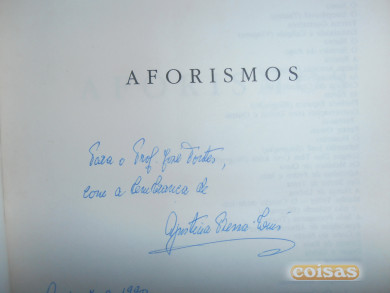 AFORISMOS
Para o Prof. José Fontes,
com a lembrança de
Agustina Bessa-Luís
coisas